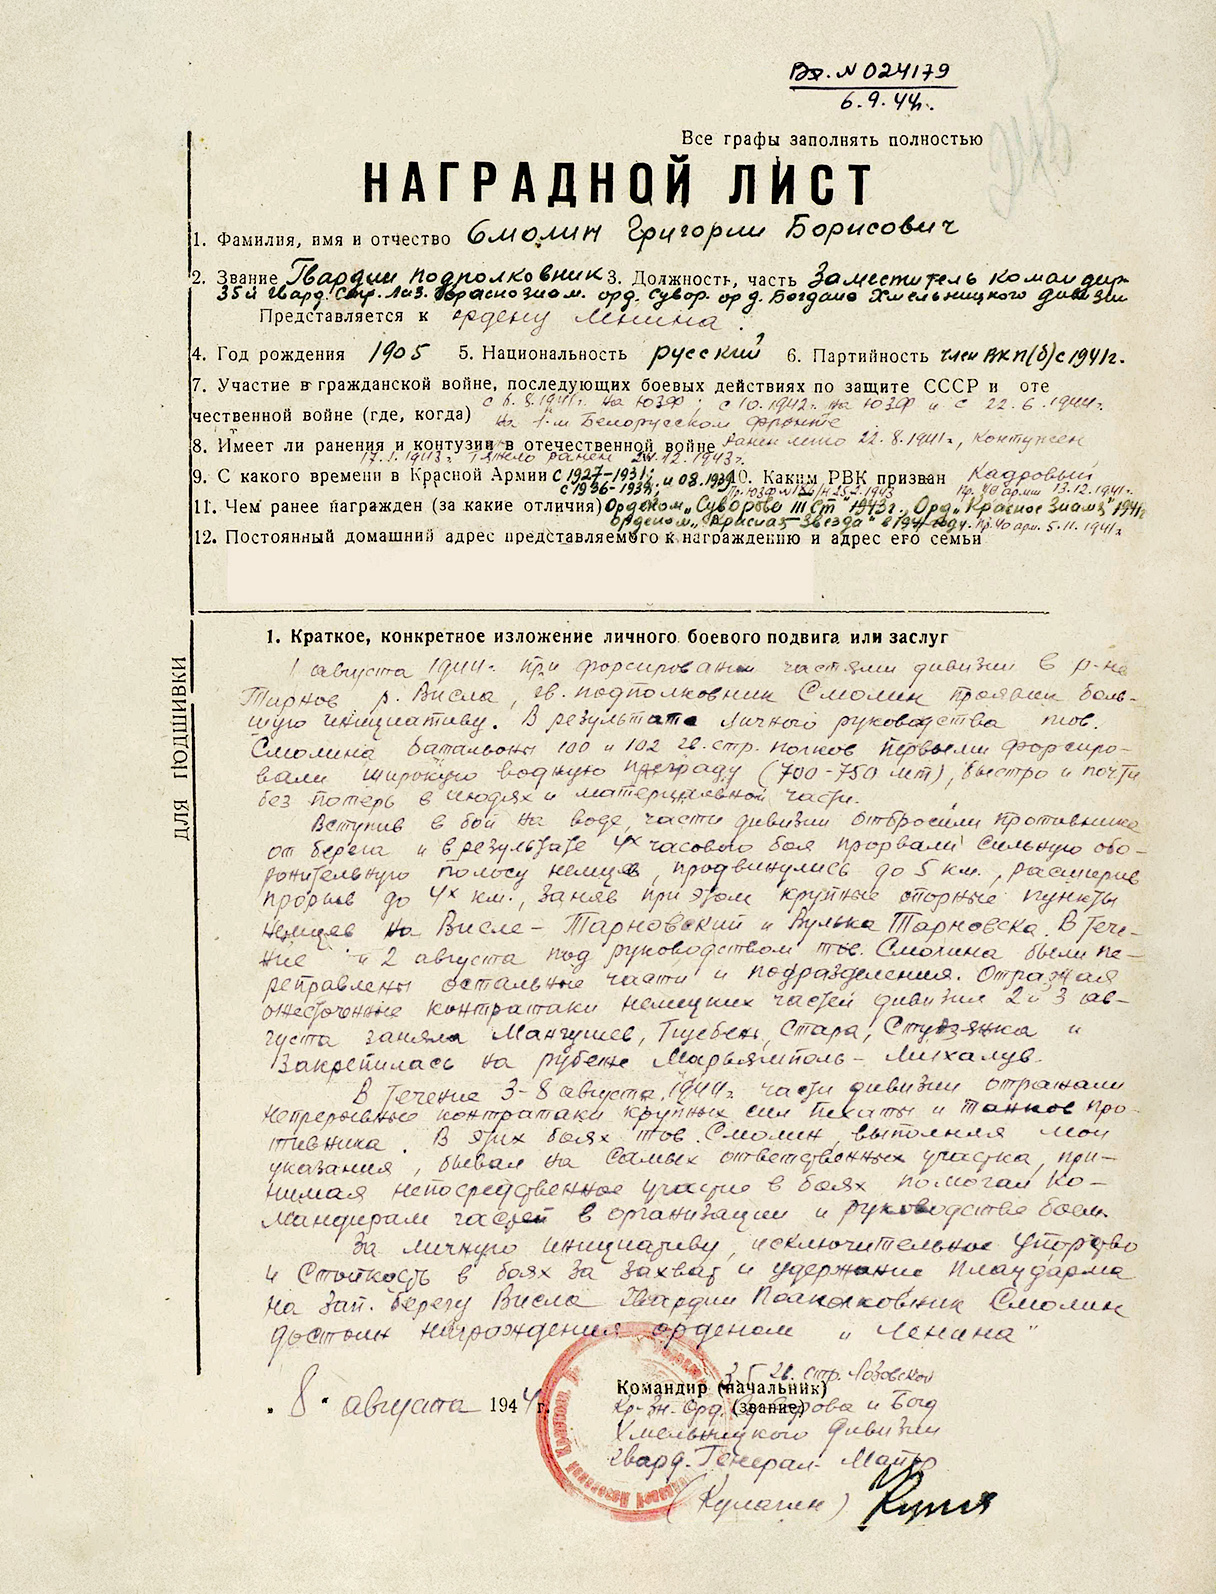 Вх. N 024179
6.9.44г.
Все графы заполнять полностью
НАГРАДНОЙ ЛИСТ
1. Фамилия, имя и отчество Смолин Григорий Борисович
2. Звание Гвардии подполковник 3. Должность, часть Заместитель командир.
35й гвард. Стр. Лоз. Краснознам. орд. Сувор. орд. Богдана Хмельницкого дивизии
Представляется к ордену Ленина.
4. Год рождения 1905 5. Национальность русский 6. Партийность член ВКП(б) с 1941г.
7. Участие в гражданской войне, последующих боевых действиях по защите СССР и оте
с 6.8.1941г. на ЮЗФ; с 10.1942г. на ЮЗФ и с 22.6.1944г.
чественной войне (где, когда)
на 1-м Белорусском фронте
8. Имеет ли ранения и контузии в отечественной войне Ранен 22.8.1941г., контужен
17.1.1943г. тяжело ранен 24.12.1943г.
9. С какого времени в Красной Армии с 1927-1931; 10. Каким РВК призван Кадровый
с 1936-1938; и 08.1939
Пр. ЮЗФ 25.2.1943 Пр. армии 13.12.1941г.
11. Чем ранее награжден (за какие отличия) Орденом „Суворова III Ст" 1943г., Орд „Красное Знамя" 1941г
орденом „Красная Звезда" в 1941 году. Пр. 40 арм. 5.11.1941г
12. Постоянный домашний адрес представляемого к награждению и адрес его семьи
1. Краткое, конкретное изложение личного боевого подвига или заслуг
1 августа 1944г. При форсировании частями дивизии в р-не
Тарнов р. Висла, гв. подполковник Смолин проявил боль-
шую инициативу. В результате личного руководства тов.
Смолина батальоны 100 и 102 гв. стр. полков первыми форсиро-
вали широкую водную преграду (700-750 мт), быстро и почти
без потерь в людях и материальной части.
Вступив в бой на воде, части дивизии отбросили противника
от берега и в результате 4х часового боя прорвали сильную обо-
ронительную полосу немцев, продвинулись до 5 км., расширив
прорыв до 4х км., заняв при этом крупные опорные пункты
немцев на Висле - Тарновский и Вулька Тарновска. В тече-
ние и 2 августа под руководством тов. Смолина были пе-
реправлены остальные части и подразделения. Отражая
ожесточенные контратаки немецких частей дивизия 2 и 3 ав-
густа заняла Мангушев, Грубень, Стара, Студзянка и
Закрепилась на рубеже Марьямполь - Михалув.
В течение 3-8 августа 1944г. части дивизии отражали
непрерывные контратаки крупных сил пехоты и танков про-
тивника. В этих боях тов. Смолин, выполняя мои
указания, бывал на самых ответственных участка, при-
нимая непосредственное участие в боях помогал Ко-
мандирам частей в организации и руководстве боем.
За личную инициативу, исключительное упорство
и стойкость в боях за захват и удержание плацдарма
на зап. берегу Висла Гвардии Подполковник Смолин
достоин награждения орденом „Ленина"
35 гв. стр. Лозовской
Командир (начальник)
„8" августа 1944г.
Кр-Зн. Орд. Суворова и Богд
(звание)
Хмельницкого дивизии
Гвард. Генерал-Майор
(Кулагин)
ДЛЯ ПОДШИВКИ